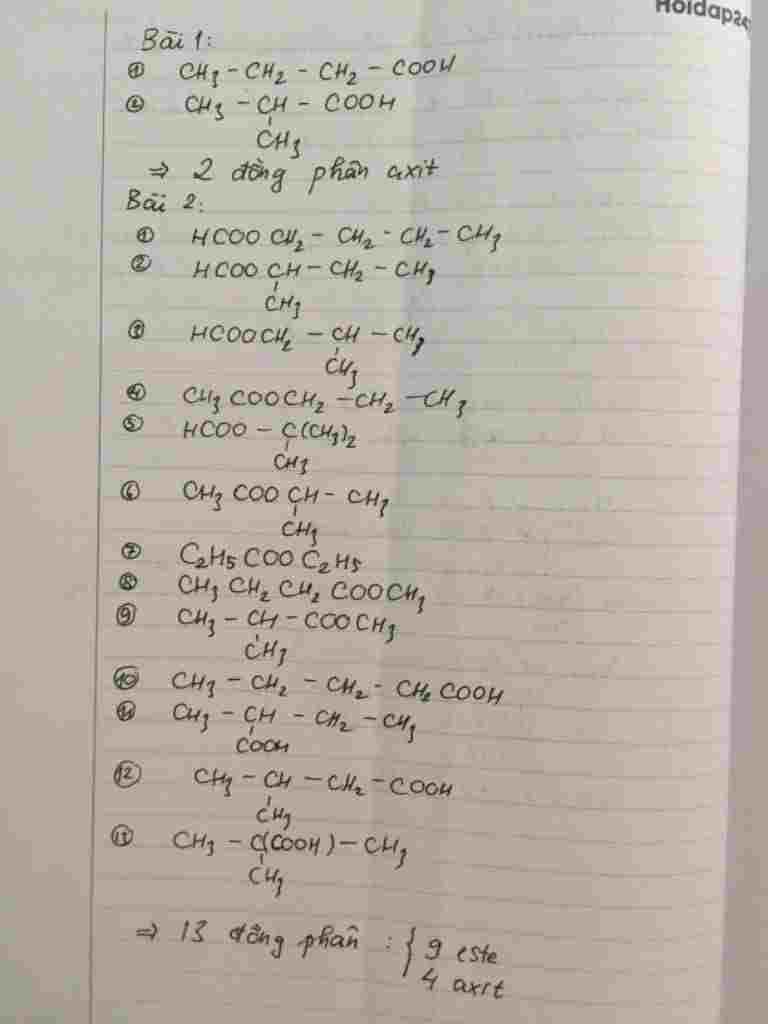 Hoidap247
Bài 1:
① CH3 - CH2 - CH2 - COOH
② CH3 - CH - COOH
CH3
⇒ 2 đồng phân axit
Bài 2:
① HCOO CH2 - CH2 - CH2 - CH3
② HCOO CH - CH2 - CH3
CH3
③ HCOOCH2 - CH - CH3
CH3
④ CH3 COOCH2 - CH2 - CH3
⑤ HCOO - C(CH3)2
CH3
⑥ CH3 COO CH - CH3
CH3
⑦ C2H5 COO C2H5
⑧ CH3 CH2 CH2 COOCH3
⑨ CH3 - CH - COO CH3
CH3
⑩ CH3 - CH2 - CH2 - CH2 COOH
⑪ CH3 - CH - CH2 - CH3
COOH
⑫ CH3 - CH - CH2 - COOH
CH3
⑬ CH3 - C(COOH) - CH3
CH3
⇒ 13 đồng phân : { 9 este
4 axit